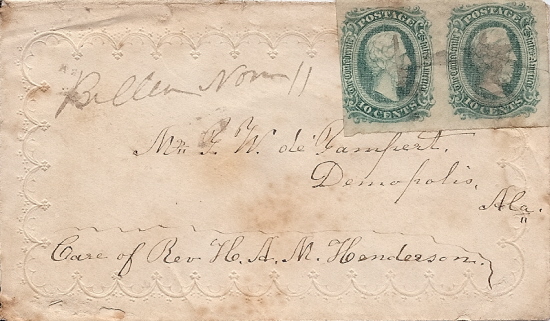 POSTAGE POSTAGE
The Confederate States of America The Confederate States of America
10 CENTS 10 CENTS
Nov 11
W. de Yampert.
Demopolis,
Ala.
Care of Rev H. A. M. Henderson.